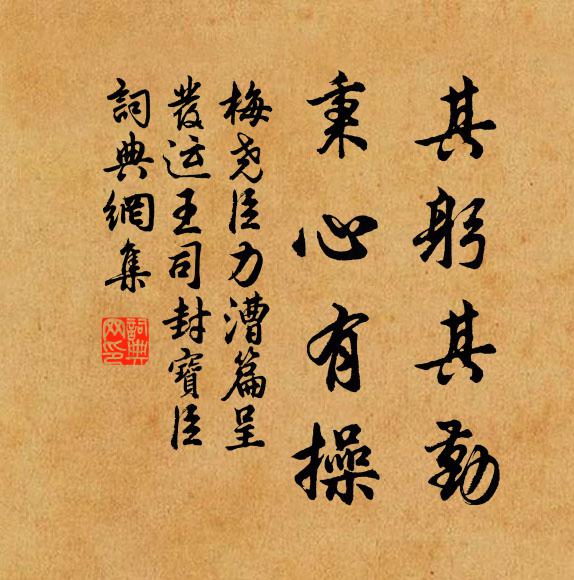 其躬其勤
秉心有操
梅尧臣力漕篇呈
發运王司封寶臣
詞典網集
詞典网印